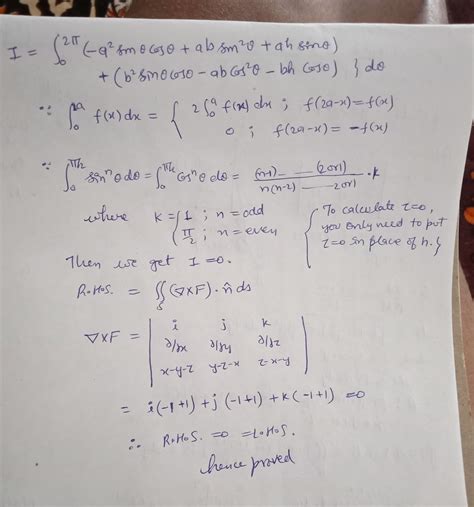 I = ∫₀^{2π} (-a² sinθ cosθ + ab sin²θ + ah sinθ)
+ (b² sinθ cosθ - ab cos²θ - bh cosθ) } dθ
∵ ∫₀^{2a} f(x) dx = { 2∫₀^a f(x) dx ; f(2a-x) = f(x)
0 ; f(2a-x) = -f(x)
∵ ∫₀^{π/2} sinⁿθ dθ = ∫₀^{π/2} cosⁿθ dθ = (n-1) --- (2 or 1) / n(n-2) --- 2 or 1 · k
where k = { 1 ; n = odd
π/2 ; n = even
{ To calculate z=0,
you only need to put
z=0 in place of h. }
Then we get I = 0.
R.H.S. = ∬_S (∇×F)·n̂ ds
∇×F = | i j k
∂/∂x ∂/∂y ∂/∂z
x-y-z y-z-x z-x-y |
= i(-1+1) + j(-1+1) + k(-1+1) = 0
∴ R.H.S. = 0 = L.H.S.
hence proved